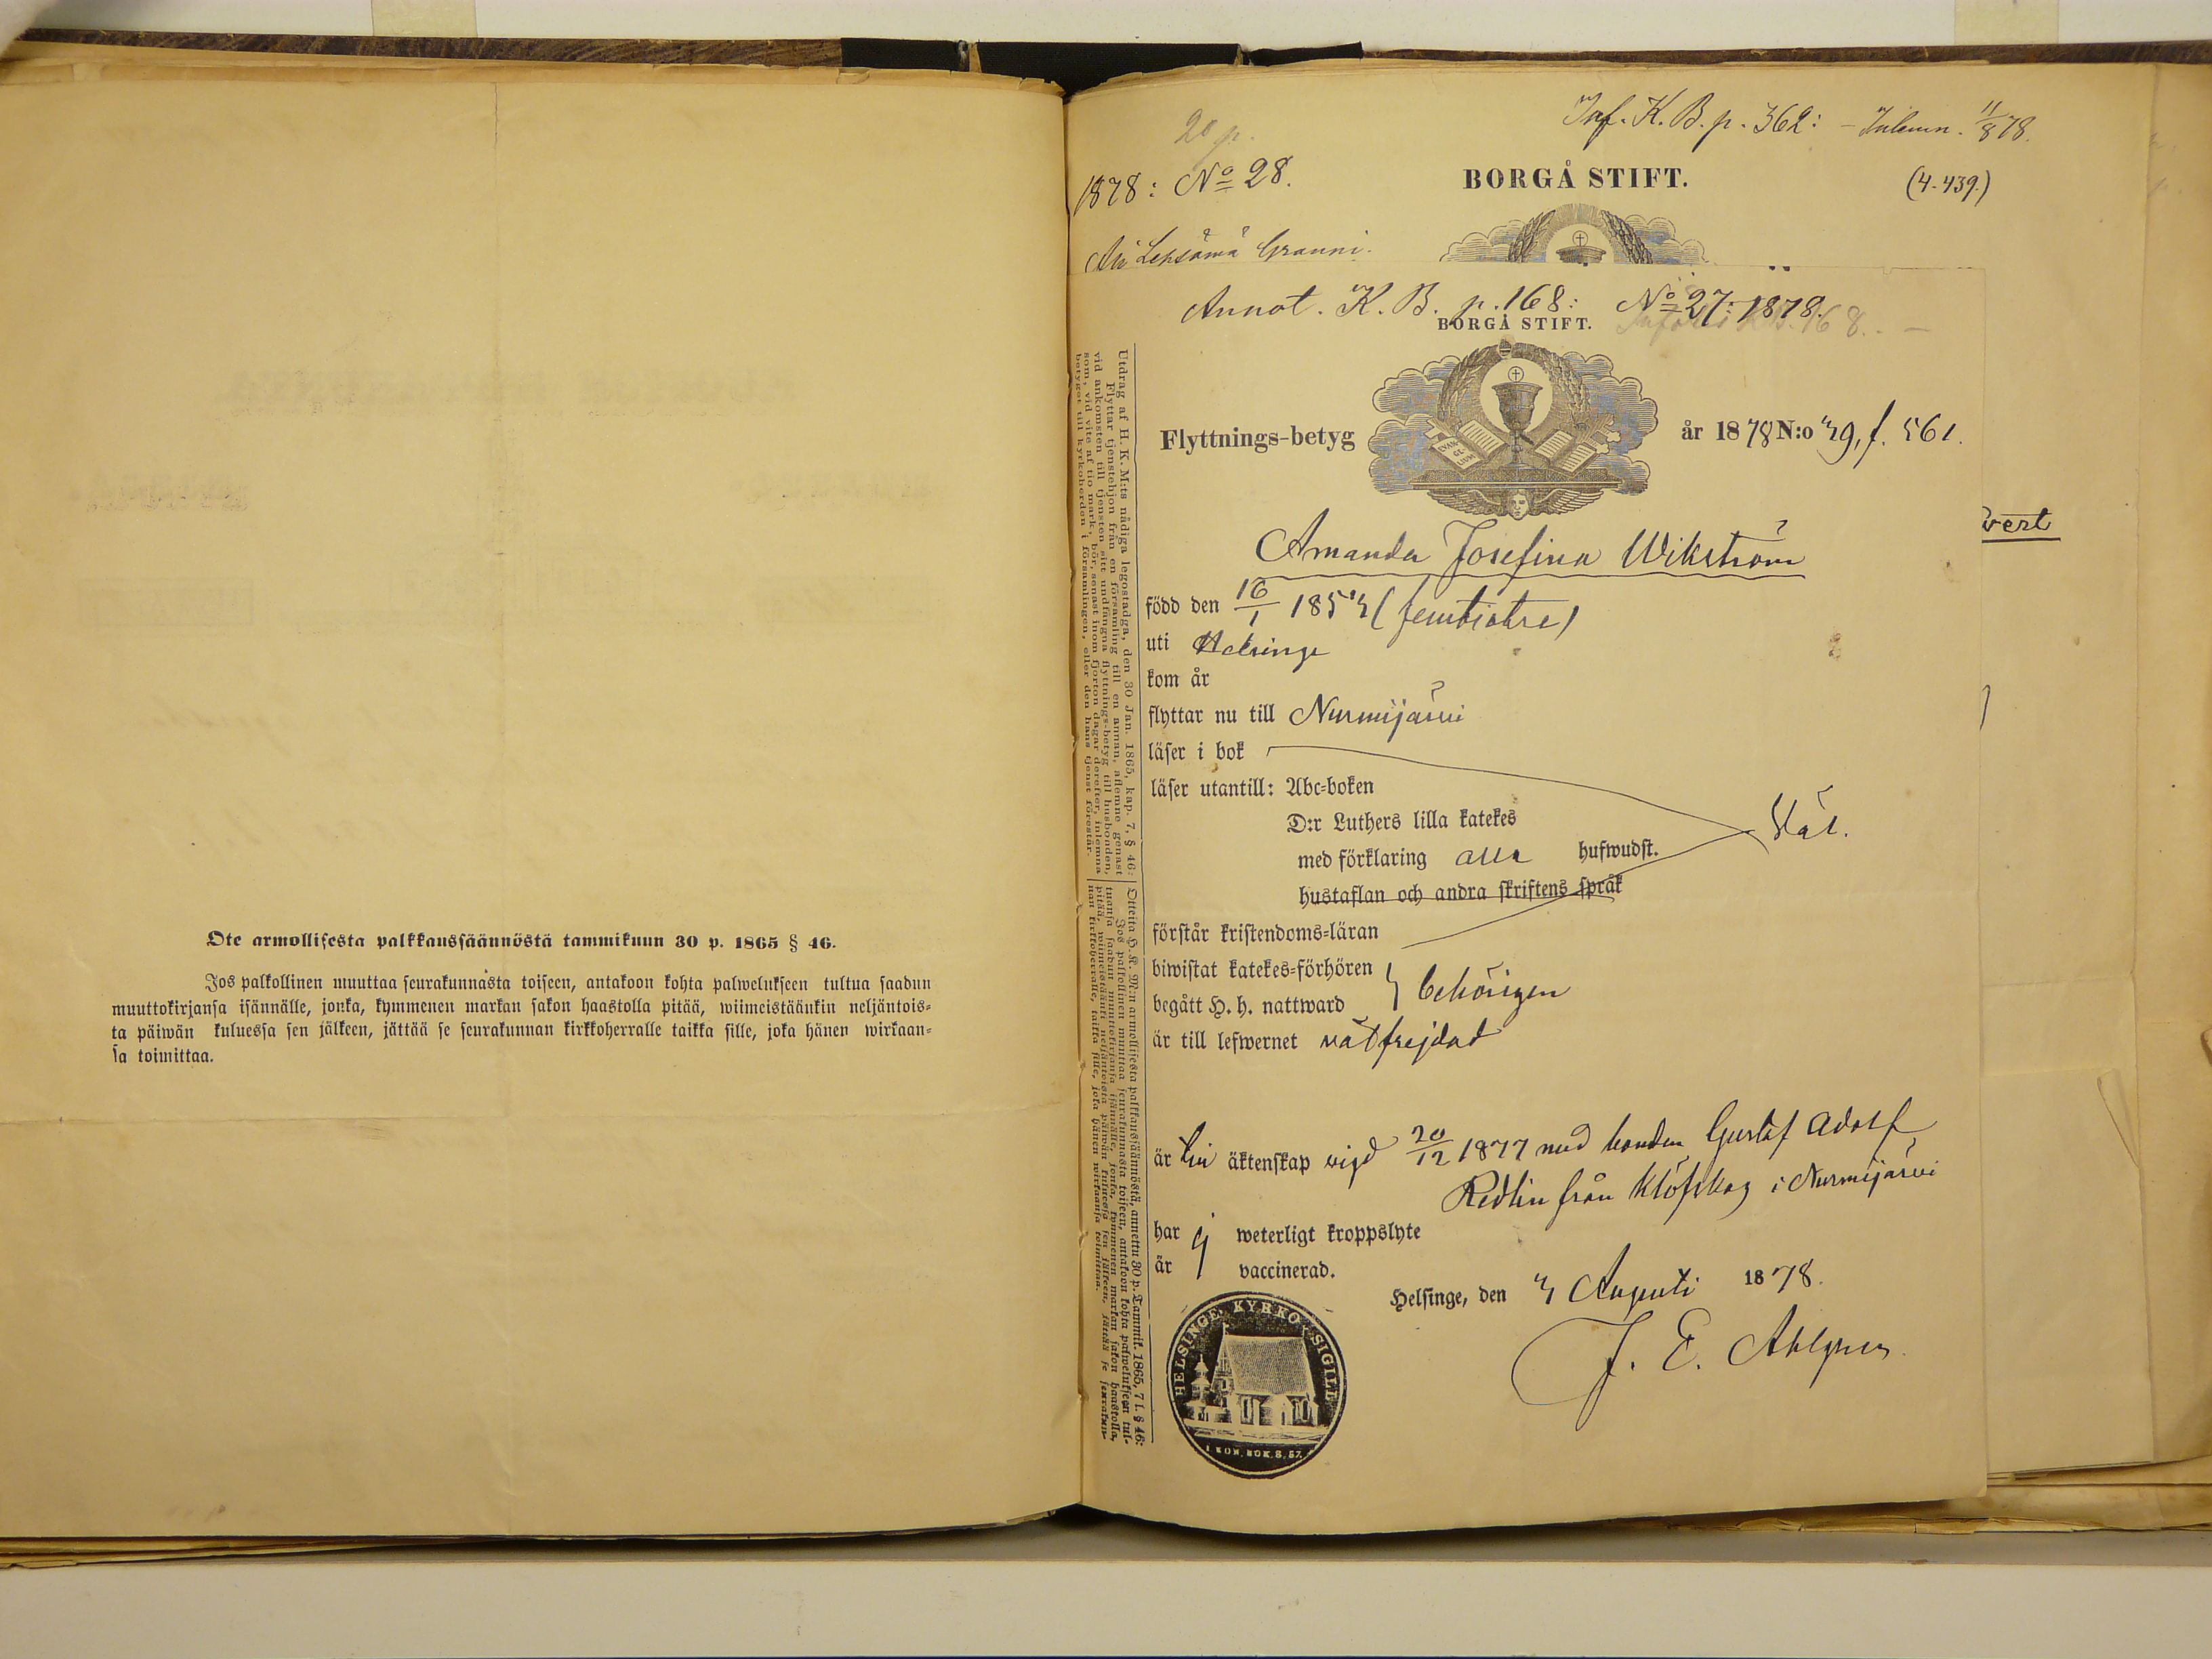 Ote armollisesta palkkaussäännöstä tammikuun 30 p. 1865 § 46.
Jos palkollinen muuttaa seurakunnasta toiseen, antakoon kohta palwelukseen tultua saadun
muuttokirjansa isännälle, jonka, kymmenen markan sakon haastolla pitää, wiimeistäänkin neljäntois-
ta päiwän kuluessa sen jälkeen, jättää se seurakunnan kirkkoherralle taikka sille, joka hänen wirkaan-
sa toimittaa.
20 p.
Inf. K. B. p. 362: - Inlemn. 11/8 78.
1878: No 28.
BORGÅ STIFT.
(4-439.)
Lepsämä Granni.
Annot. K. B. p. 168: No 27: 1878.
BORGÅ STIFT.
Flyttnings-betyg
EVAN-
GE-
LIUM
år 1878 N:o 39, f. 561.
Amanda Josefina Wikström
född den 16/1 1853 (femtiotre)
uti Helsinge
kom år
flyttar nu till Nurmijärvi
läser i bok
läser utantill: Abc-boken
D:r Luthers lilla katekes
med förklaring alla hufwudst.
hustaflan och andra skriftens språk
förstår kristendoms-läran
biwistat katekes-förhören
begått H. h. nattward
behörigen
är till lefwernet välfrejdad
är i äktenskap vigd 20/12 1877 med bonden Gustaf Adolf
Redlin från Klöfskog i Nurmijärvi
har ej weterligt kroppslyte
är vaccinerad.
Helsinge, den 3 Augusti 1878.
J. E. Ahlgren
HELSINGE KYRKO SIGILL
1 KON. BOK. 8, 57.
Utdrag af H. K. M:ts nådiga legostadga, den 30 Jan. 1865, kap. 7, § 46:
Flyttar tjenstehjon från en församling till en annan, aflemne genast
vid ankomsten till tjensten sitt undfångna flyttnings-betyg till husbonden,
som, vid vite af tio mark, bör, senast inom fjorton dagar derefter, inlemna
betyget till kyrkoherden i församlingen, eller den hans tjenst förestår.
Otteita H. K. M:n armollisesta palkkaussäännöstä, annettu 30 p. Tammik. 1865, 7 l. § 46:
Jos palkollinen muuttaa seurakunnasta toiseen, antakoon kohta palwelukseen tul-
tuansa saadun muuttokirjansa isännälle, jonka, kymmenen markan sakon haastolla,
pitää, wiimeistäänki neljäntoista päiwän kuluessa sen jälkeen, jättää se seurakun-
nan kirkkoherralle, taikka sille, joka hänen wirkaansa toimittaa.